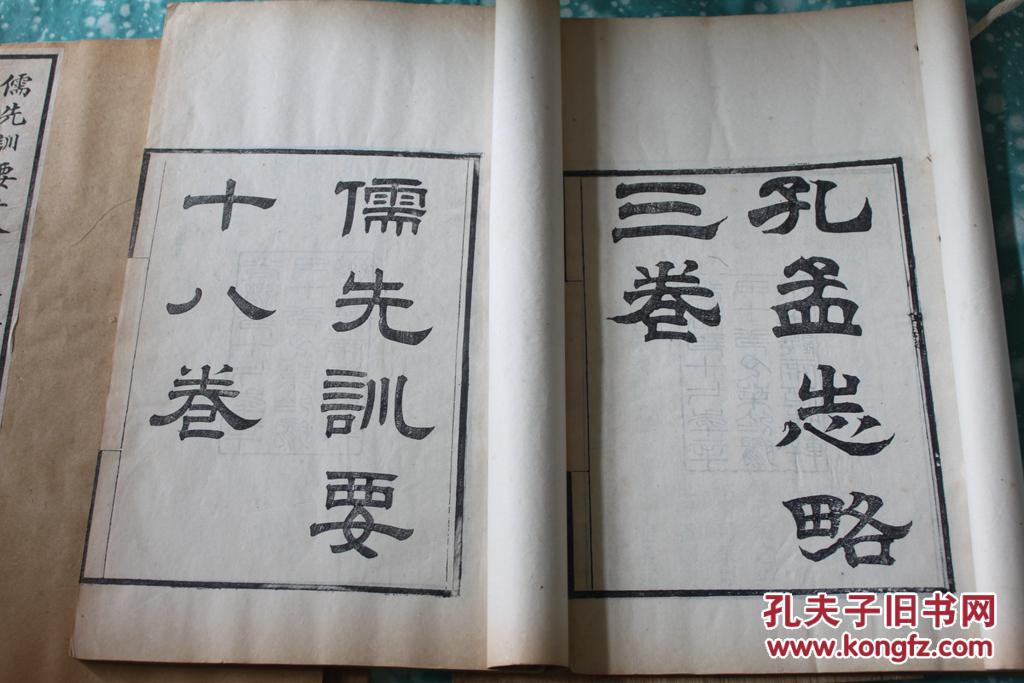 孔孟志略
三卷
儒先訓要
十八卷
儒先訓要
孔夫子旧书网
www.kongfz.com